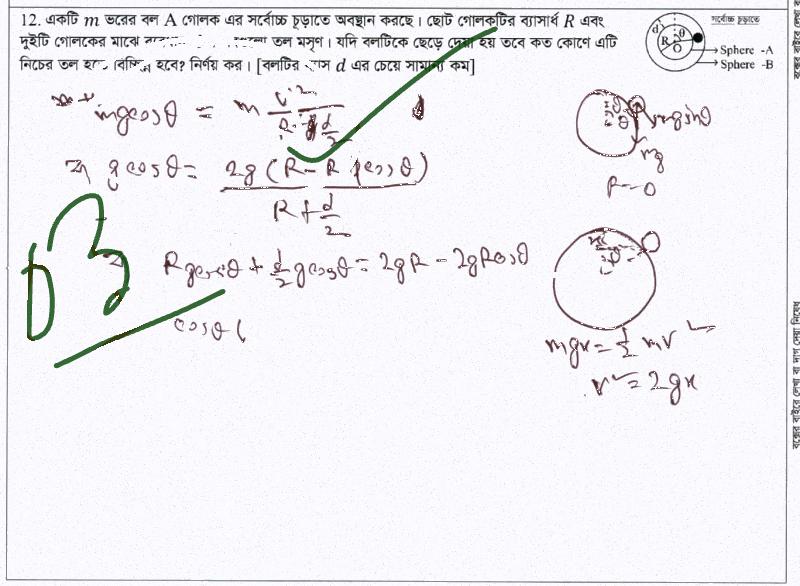 12. একটি m ভরের বল A গোলক এর সর্বোচ্চ চূড়াতে অবস্থান করছে। ছোট গোলকটির ব্যাসার্ধ R এবং
দুইটি গোলকের মাঝে তল মসৃণ। যদি বলটিকে ছেড়ে দেয়া হয় তবে কত কোণে এটি
নিচের তল হবে? নির্ণয় কর। [বলটির d এর চেয়ে সামান্য কম]
সর্বোচ্চ চূড়াতে
d
θ
R
O
Sphere -A
Sphere -B
mgcosθ = m v²/(R + d/2)
g cosθ = 2g(R-R cosθ)/(R+d/2)
Rgcosθ + d/2 gcosθ = 2gR - 2gRcosθ
cosθ (
mgsinθ
mg
mgx = 1/2 mv²
v² = 2gx
বক্সের বাইরে লেখা বা দাগ দেয়া নিষেধ